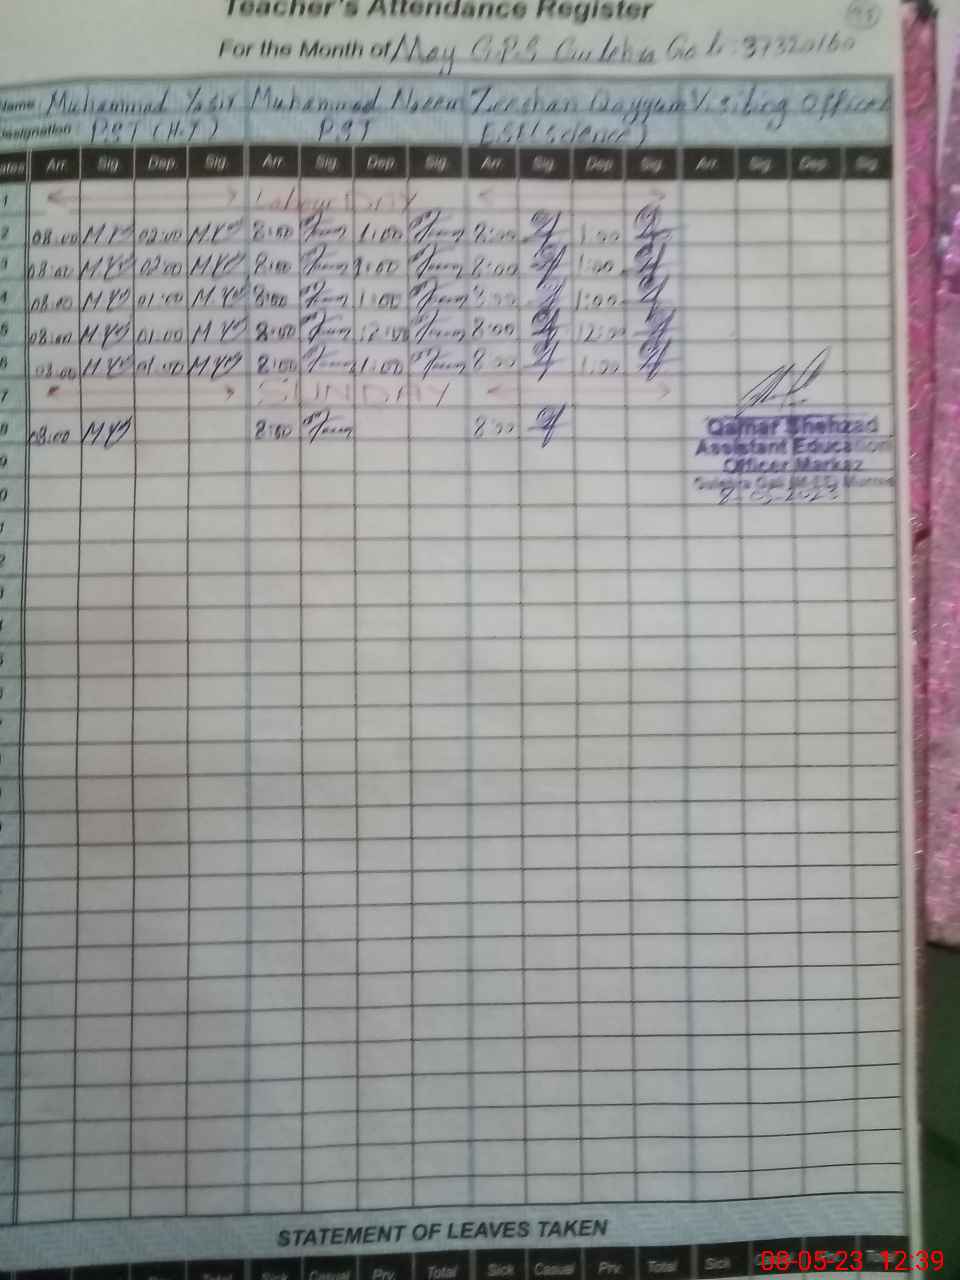 Teacher's Attendance Register
For the Month of May G.P.S Gulehra Gali 37320160
Name Muhammad Yasir Muhammad Naeem Zeeshan Qayyum Visiting Officer
Designation P.S.T (H.T) P.S.T ESE(Science)
Dates Arr. Sig. Dep. Sig. Arr. Sig. Dep. Sig. Arr. Sig. Dep. Sig. Arr. Sig. Dep. Sig.
1 Labour DAY
2 08:00 MYS 02:00 MYS 8:00 1:00 8:00 1:00
3 08:00 MYS 02:00 MYS 8:00 1:00 8:00 1:00
4 08:00 MYS 01:00 MYS 8:00 1:00 8:00 1:00
5 08:00 MYS 01:00 MYS 8:00 12:00 8:00 12:00
6 08:00 MYS 01:00 MYS 8:00 1:00 8:00 1:00
7 SUNDAY
8 08:00 MYS 8:00 8:00
Qamar Shehzad
Assistant Education
Officer Markaz
Gulehra Gali (M-EE) Murree
8-05-2023
9
0
1
2
STATEMENT OF LEAVES TAKEN
Sick Casual Prv. Total Sick Casual Prv. Total Sick
08-05-23 12:39